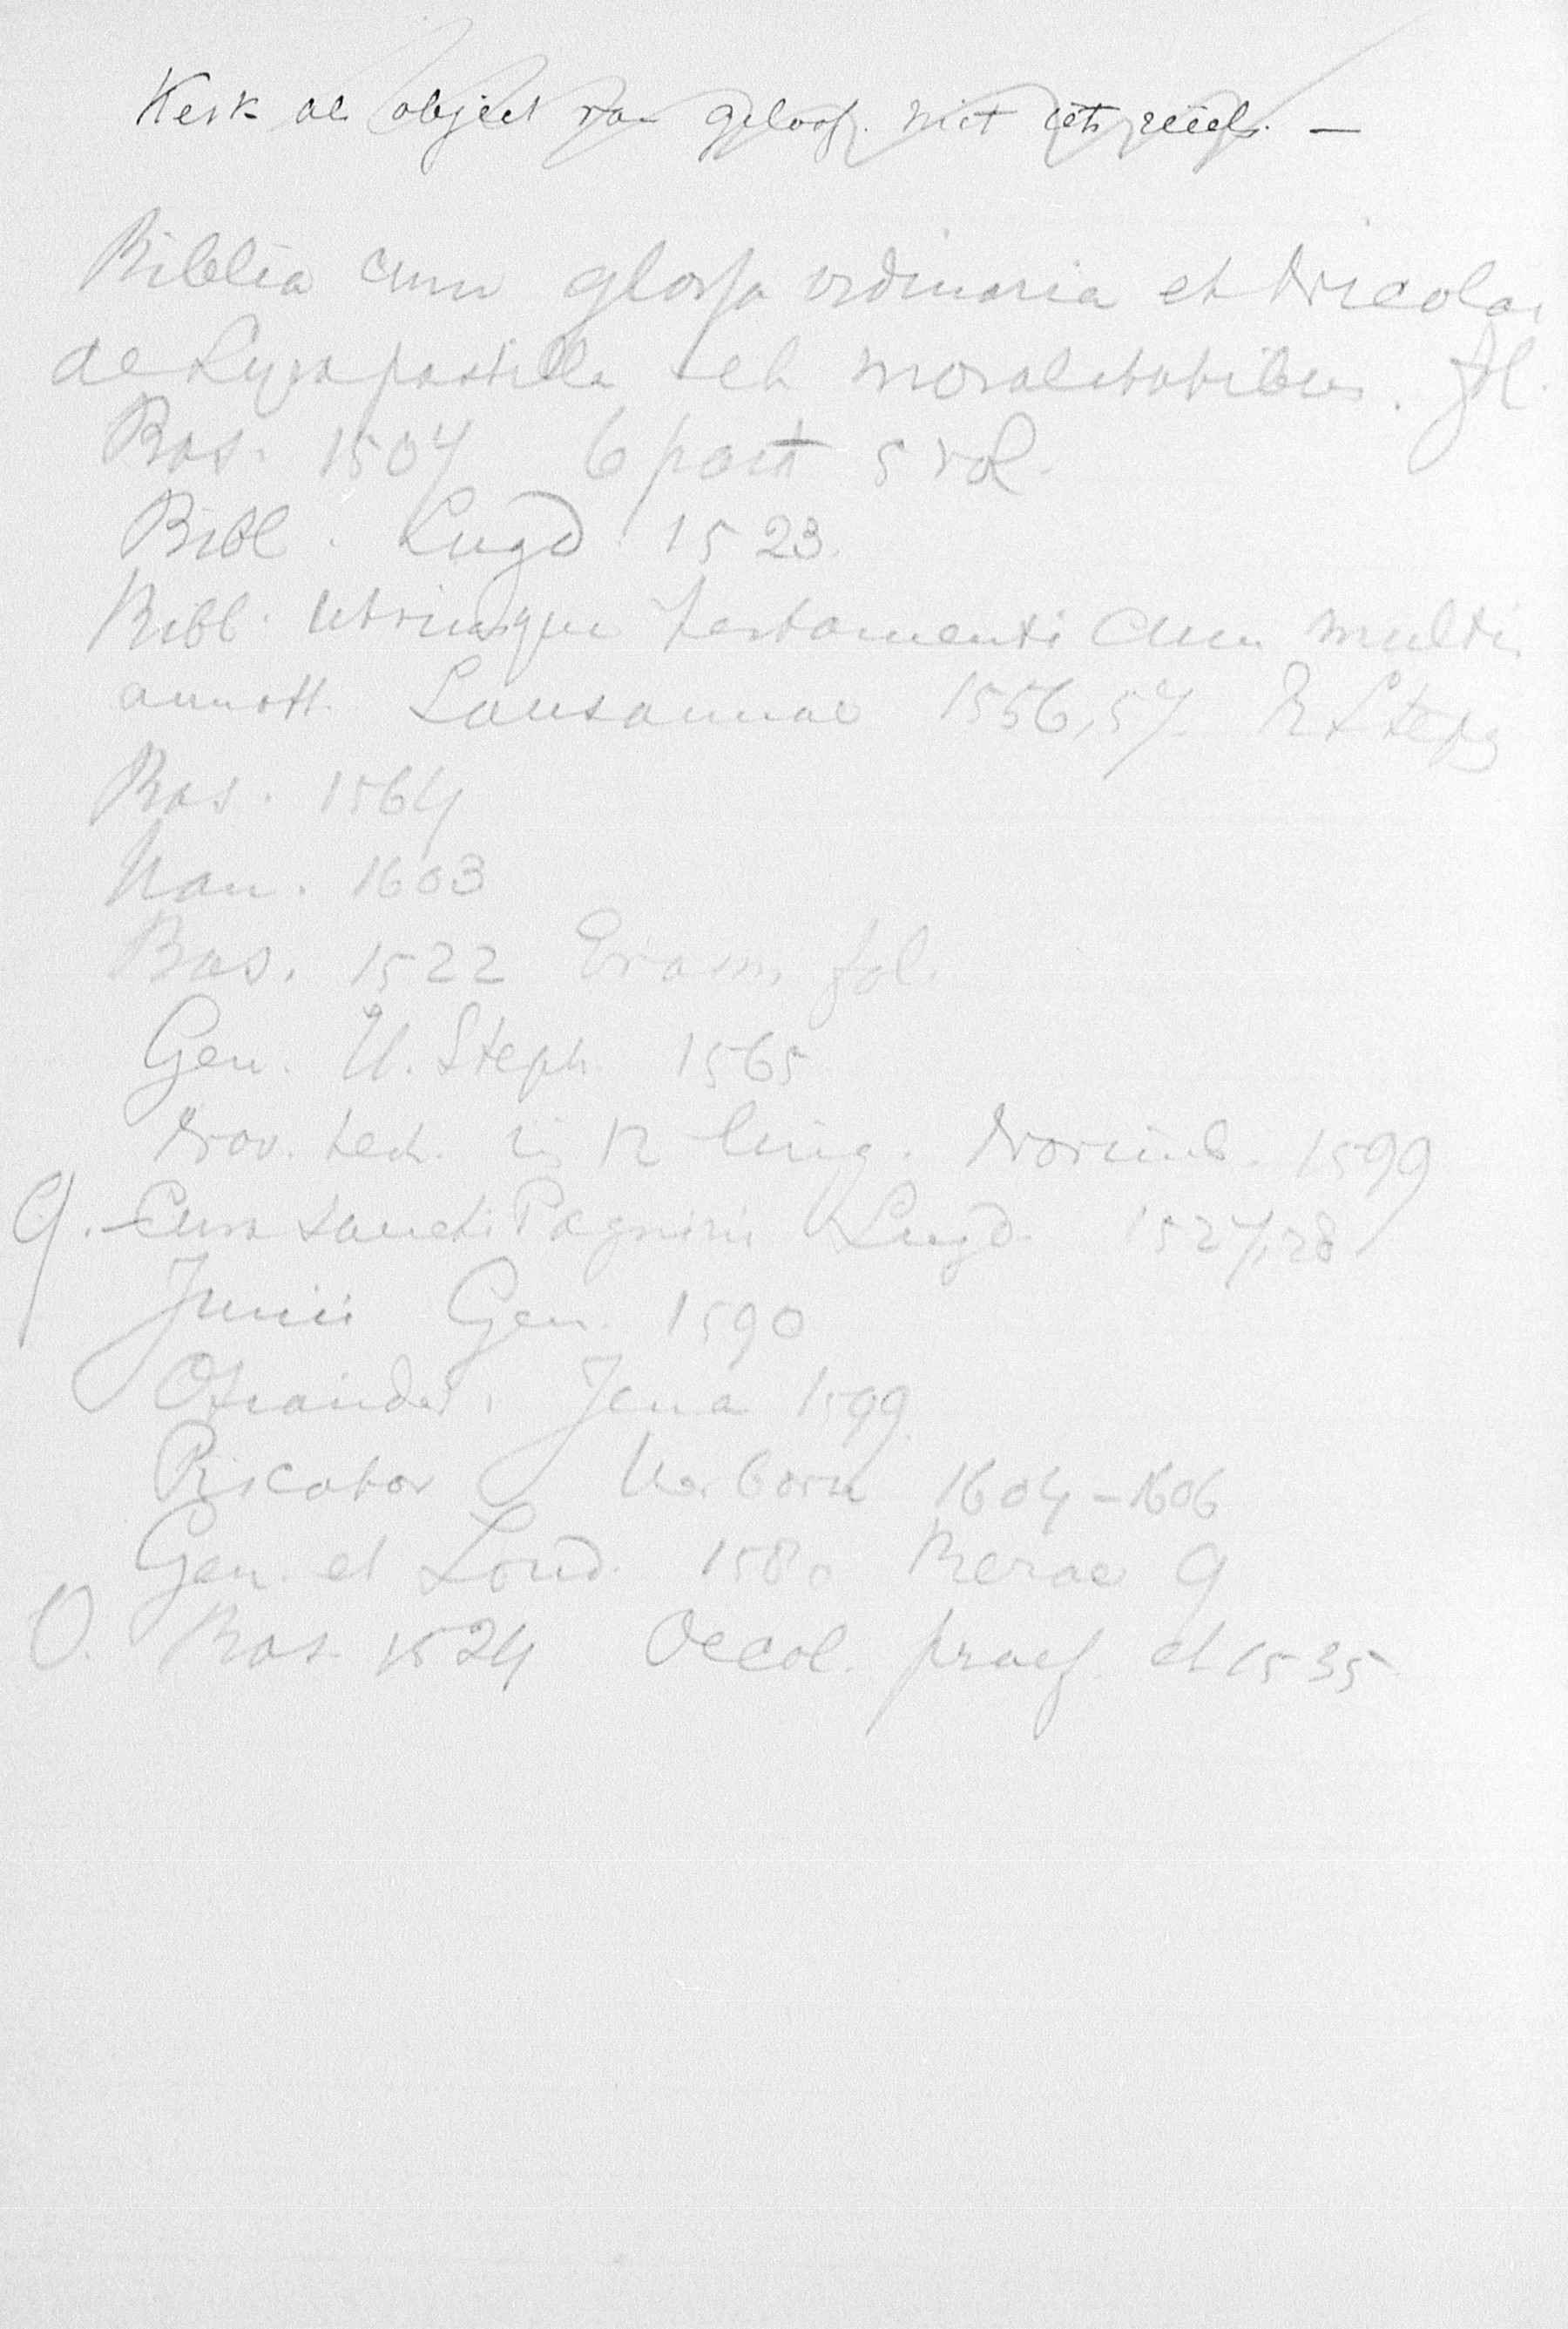 Kerk als object van geloof. niet iets
Biblia cum glossa ordinaria et Nicolai
de Lyra postilla et moralitatibus. fol.
Bas. 1507 6 part 5 vol.
Bibl. Lugd. 1523.
Bibl. utriusque testamenti cum multis
annott. Lausannae 1556,57. R Steph
Bas. 1564
Han. 1603
Bas. 1522 Erasm. fol.
Gen. H. Steph. 1565
Nov. test. in 12 ling. Norimb. 1599
Q. Cura Sancti Pagnini Lugd. 1527,28
Junii Gen. 1590
Osiander. Jena 1599
Piscator Herborn 1604-1606
Gen. et Lond. 1580 Bezae Q
O. Bas. 1524 Oecol. praef. et 1535